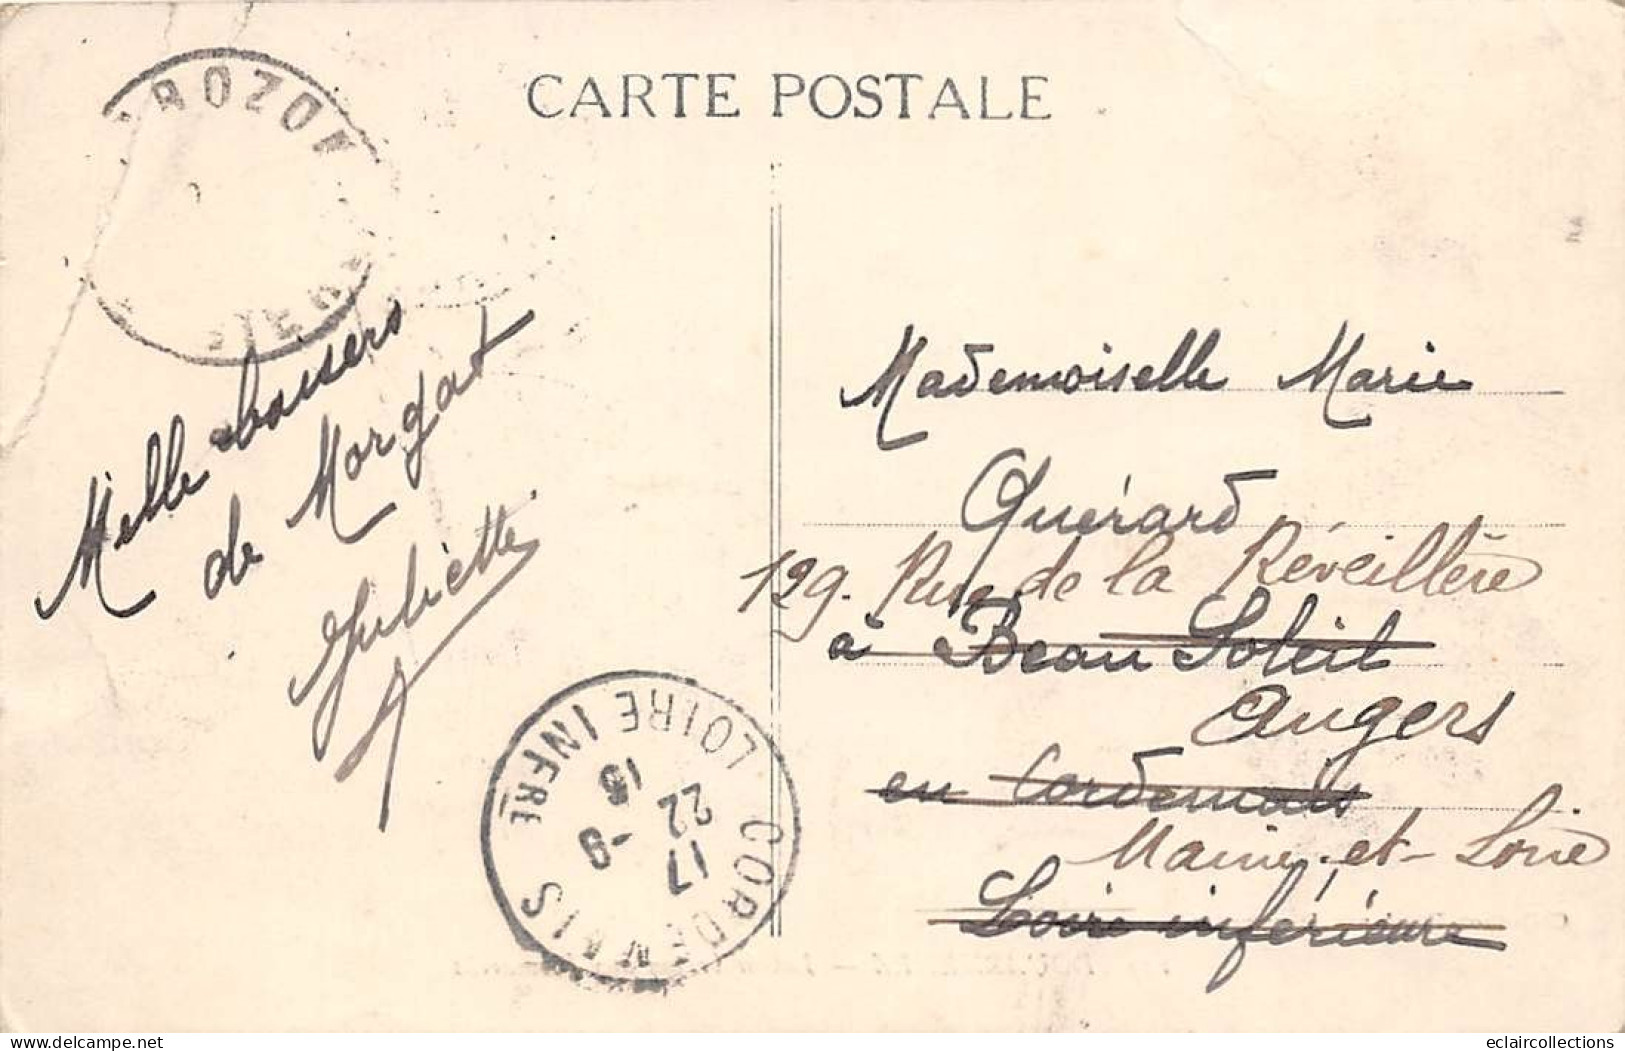 CARTE POSTALE
ROZON
Melle baisers
de Morgat
Juliette
Mademoiselle Marie
Quérard
129. Rue de la Réveillère
à Beau Soleil
Angers
en Cordemais
Maine-et-Loire
Loire inférieure
CORDEMAIS
LOIRE INFRE
17 -9
22
eclaircollections